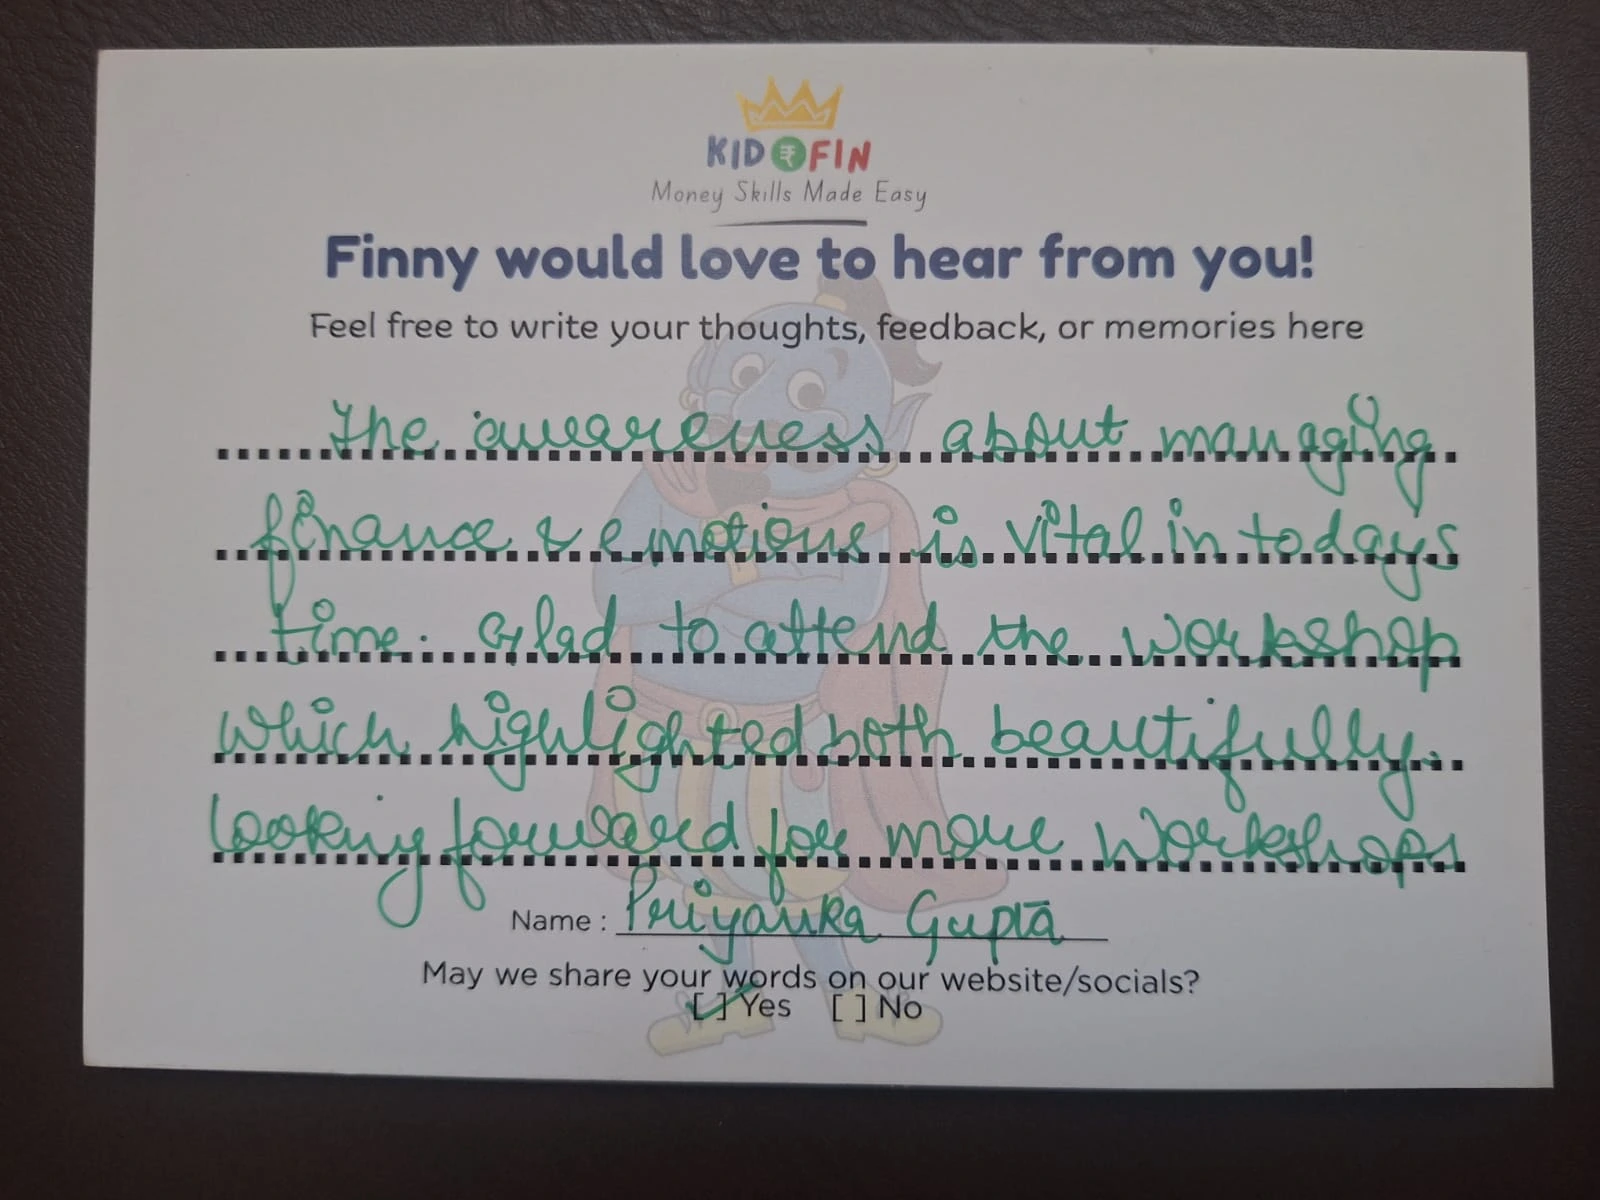 KID₹FIN
Money Skills Made Easy
Finny would love to hear from you!
Feel free to write your thoughts, feedback, or memories here
The awareness about managing
finance & emotions is vital in todays
time. Glad to attend the workshop
which highlighted both beautifully.
looking forward for more workshops
Name : Priyanka Gupta
May we share your words on our website/socials?
[✓] Yes [ ] No